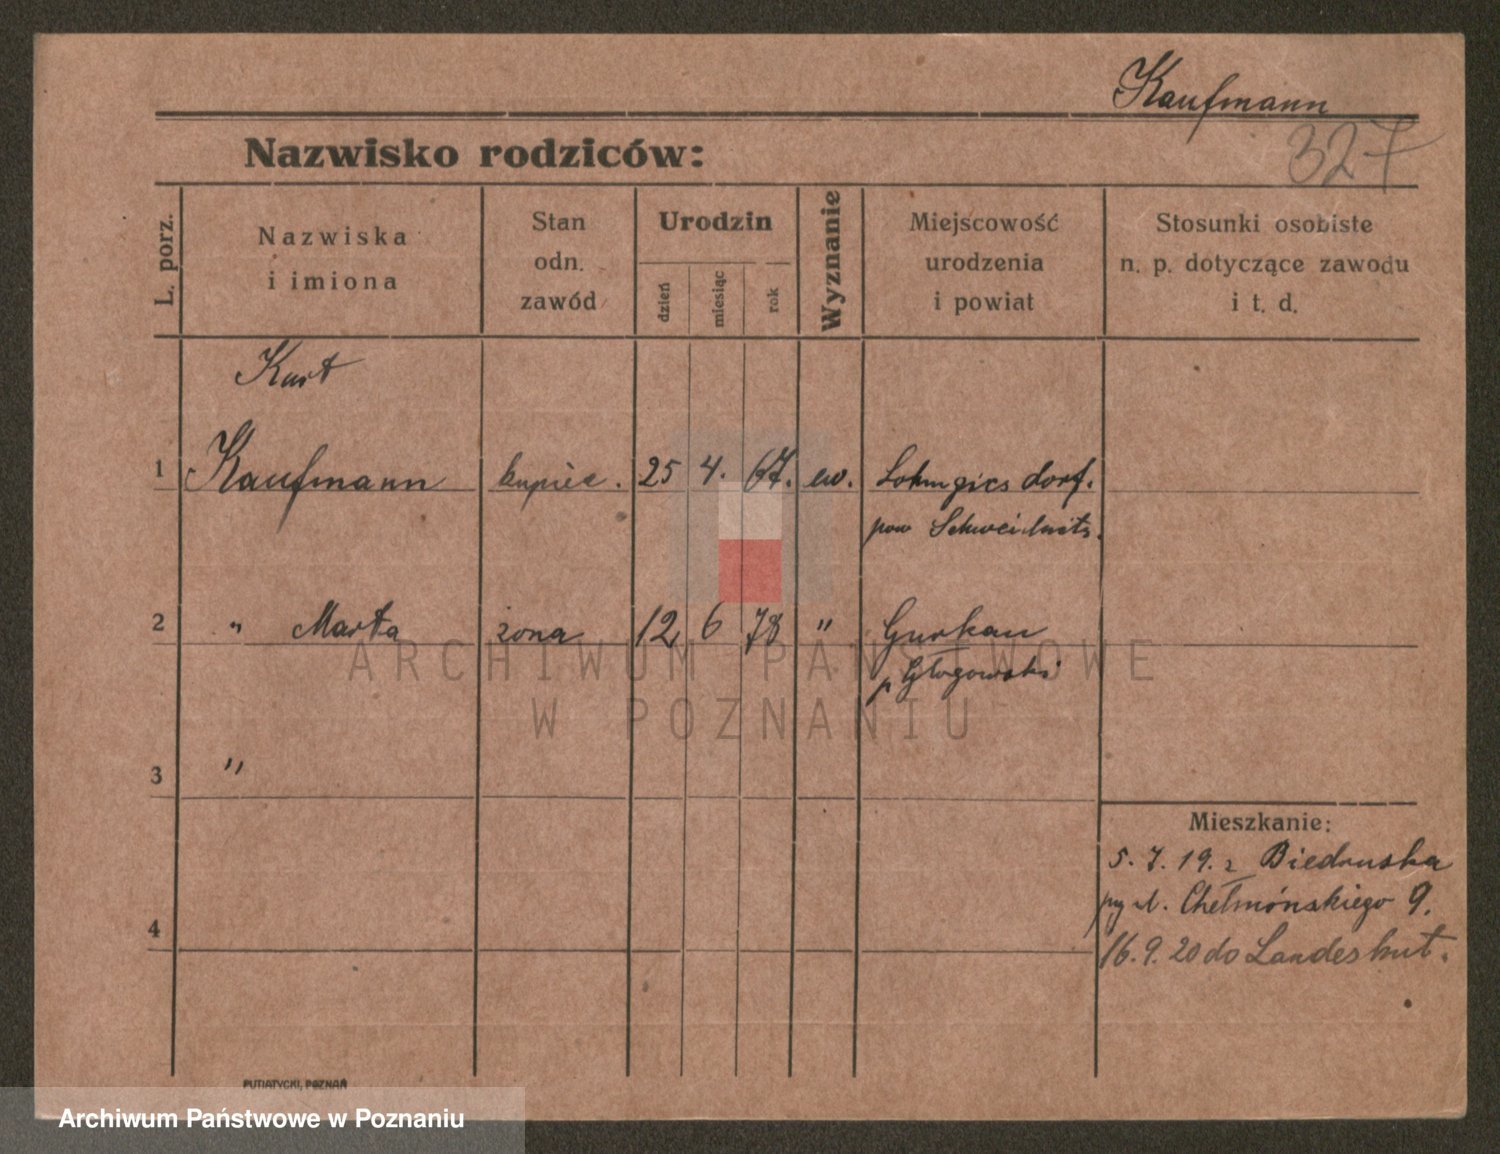 Kaufmann
327
Nazwisko rodziców:
L. porz.
Nazwiska
i imiona
Stan
odn.
zawód
Urodzin
dzień
miesiąc
rok
Wyznanie
Miejscowość
urodzenia
i powiat
Stosunki osobiste
n. p. dotyczące zawodu
i t. d.
Kurt
1 Kaufmann kupiec. 25 4. 67. ew.
pow Schweidnitz.
2 " Marta żona 12 6 78 " Gurkau
p Głogowski
3 "
Mieszkanie:
5. 7. 19. z Biedruska
4
Chełmońskiego 9.
16. 9. 20 do Landeshut.
PUTIATYCKI, POZNAŃ
ARCHIWUM PAŃSTWOWE
W POZNANIU
Archiwum Państwowe w Poznaniu